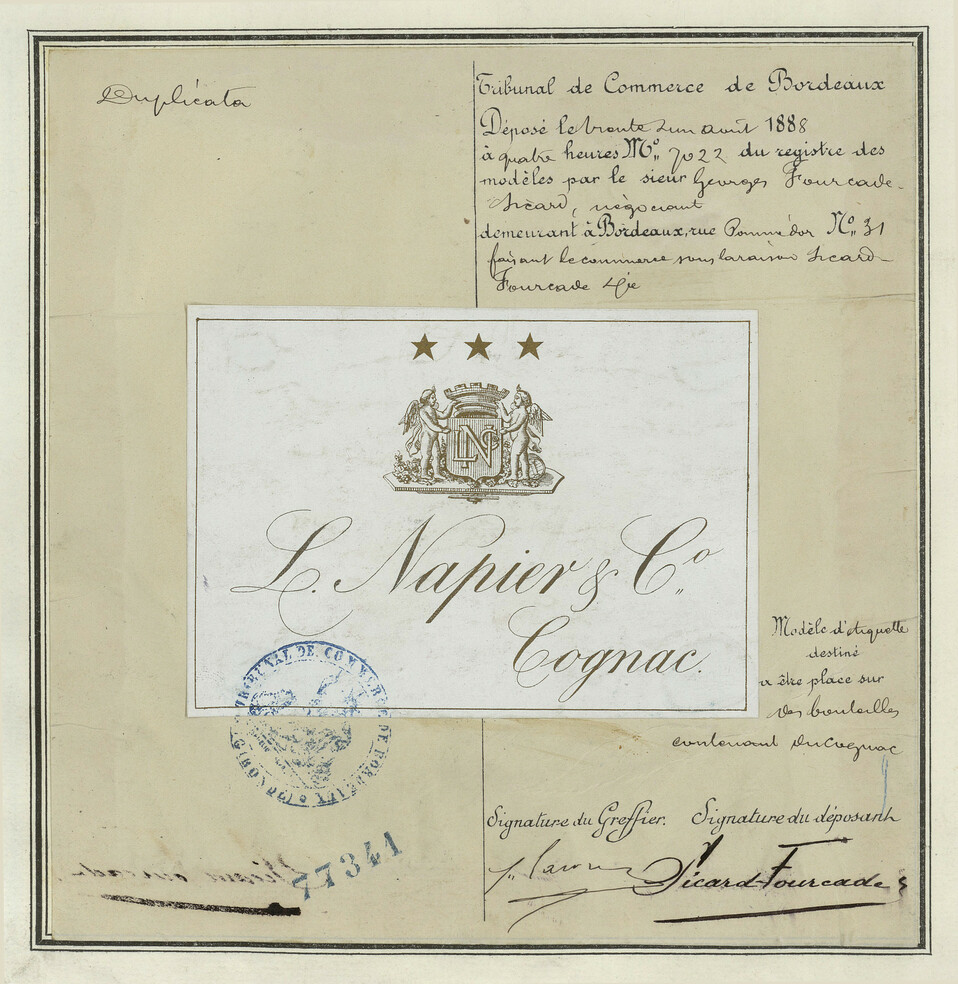 Duplicata
Tribunal de Commerce de Bordeaux
Déposé le trente un août 1888
à quatre heures No. 7022 du registre des
modèles par le sieur Georges Fourcade-
Sicard, négociant
demeurant à Bordeaux, rue Pomme d'or No. 31
faisant le commerce sous la raison Sicard
Fourcade & Cie
LNC
L. Napier & Co.
Cognac.
Modèle d'étiquette
destiné
a être place sur
des bouteilles
contenant du Cognac
TRIBUNAL DE COMMERCE DE BORDEAUX (GIRONDE)
Signature du Greffier. Signature du déposant
Sicard-Fourcade
77341